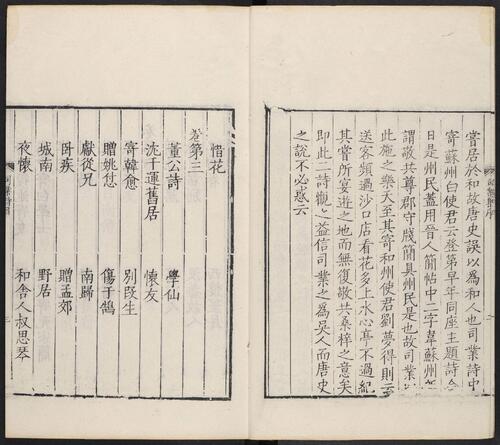 嘗居於和故唐史以為和人也司業詩中
寄蘇州白使君云登第早年同座主題詩
日是州民蓋用晉人簡帖中二字韋蘇州
謂敬共尊郡守牋簡具州民是也故司業
此施之樂天至其寄和州使君劉夢得則云
送客頻過沙口店看花多上水心亭不過紀
其嘗所宴遊之地而無復敬共桑梓之意矣
即此二詩觀之益信司業之為吳人而唐史
之說不必惑云
惜花
卷第三
董公詩 學仙
沈千運舊居 懷友
寄韓愈 別段生
贈姚怤 傷于鵠
獻從兄 南歸
臥疾 贈孟郊
城南 野居
夜懷 和舍人叔思琴